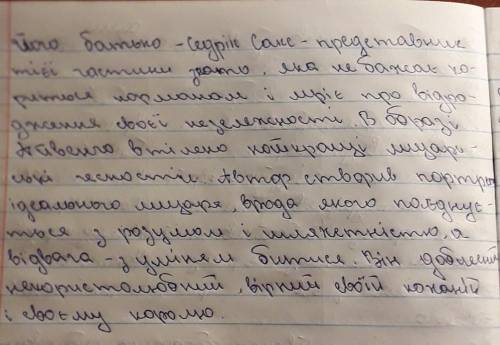 його батько - Седрік Сакс - представник
тієї частини знаті, яка не бажає ко-
ритися норманам і мріє про відро-
дження своєї незалежності В образі
Айвенго втілено найкращі лицарсь-
кі якості. Автор створив портрет
ідеального лицаря, врода якого поєднує-
ться з розумом і шляхетністю, а
відвага - з умінем битися. Він доблесний
некористолюбний, вірний своїй коханій
і своєму королю.